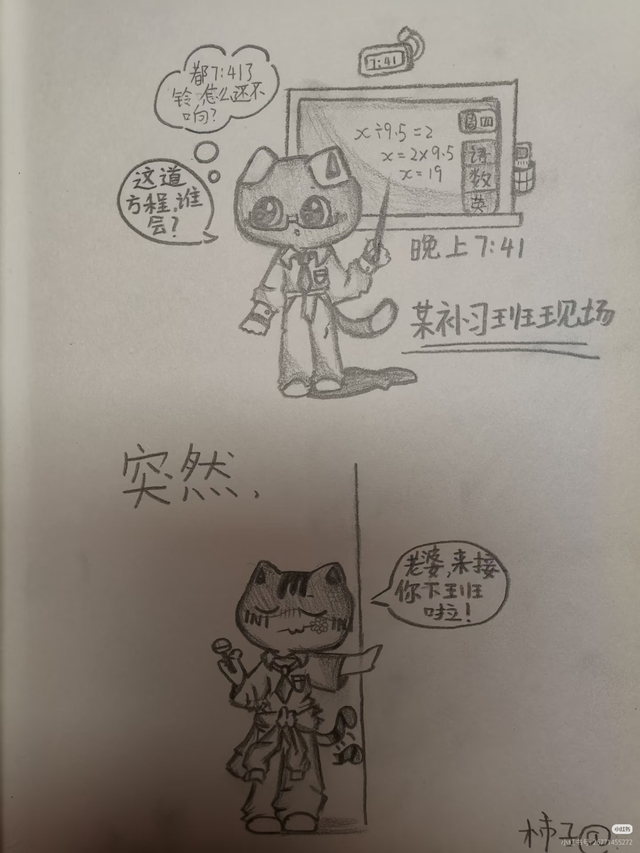 都7:41了
铃,怎么还不
响?
7:41
x÷9.5=2
x=2×9.5
x=19
周四
语
数
英
这道
方程,谁
会?
晚上7:41
某补习班现场
突然,
老婆,来接
你下班
啦!
柿子
小红书